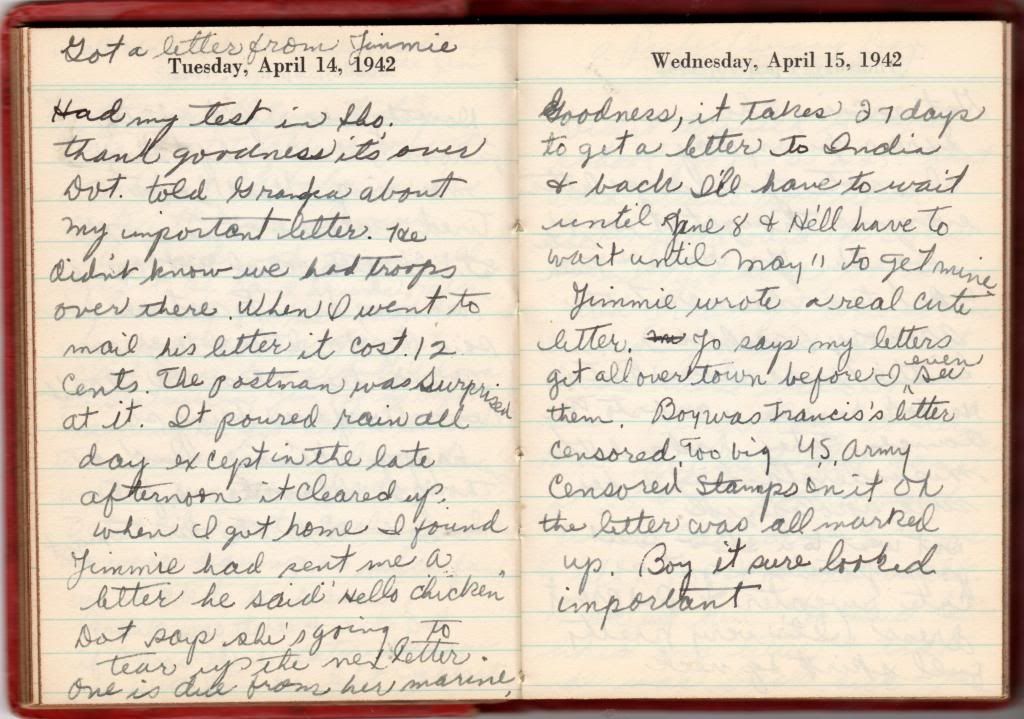 Got a letter from Jimmie
Tuesday, April 14, 1942
Had my test in Sho.
thank goodness it's over
Dot. told Grandpa about
my important letter. He
didn't know we had troops
over there. When I went to
mail his letter it cost. 12
cents. The postman was surprised
at it. It poured rain all
day except in the late
afternoon it cleared up.
When I got home I found
Jimmie had sent me a
letter he said "Hello chicken"
Dot says she's going to
tear up the next letter.
One is due from her marine.
Wednesday, April 15, 1942
Goodness, it takes 27 days
to get a letter to India
& back I'll have to wait
until June 8 & He'll have to
wait until May 11 to get mine
Jimmie wrote a real cute
letter. Jo says my letters
get all over town before I even see
them. Boy was Francis's letter
censored, Too big U.S. Army
Censored Stamps on it Oh
the letter was all marked
up. Boy it sure looked
important